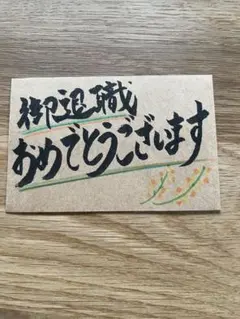 御退職
おめでとうございます